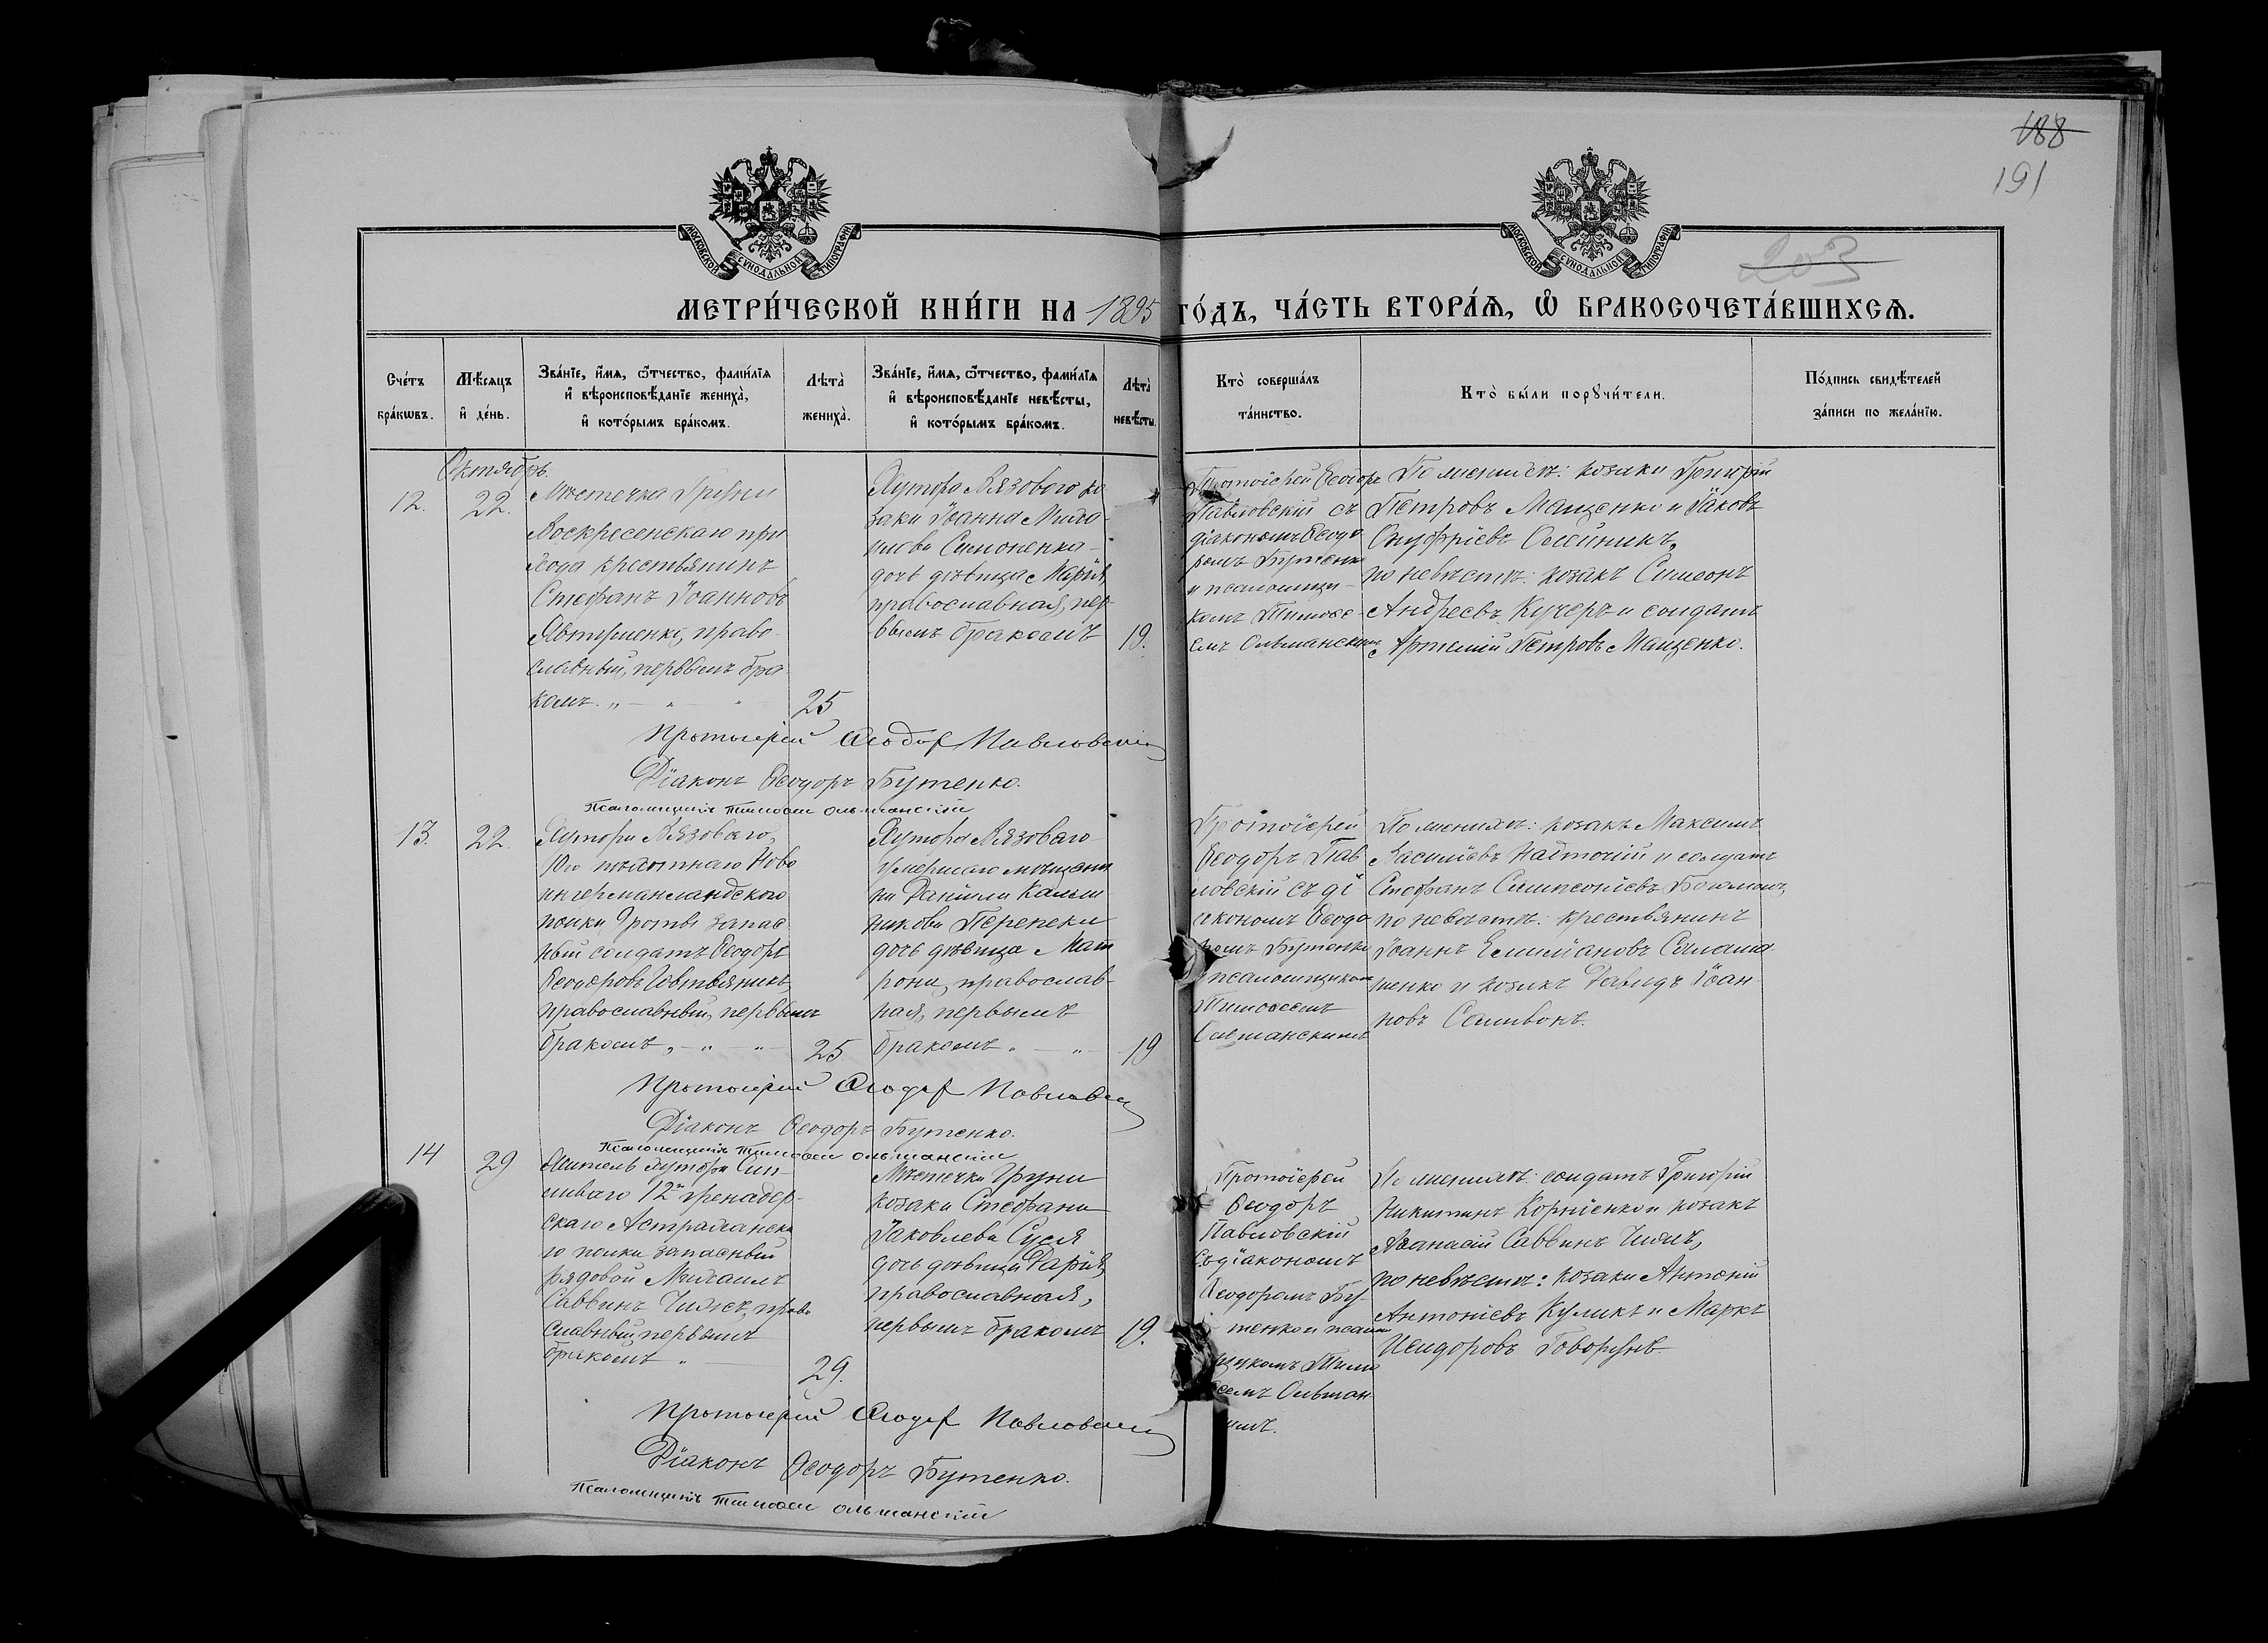 188
191
203
МОСКОВСКОЙ СУНОДАЛЬНОЙ ТИПОГРАФІИ
МОСКОВСКОЙ СУНОДАЛЬНОЙ ТИПОГРАФІИ
МЕТРИ́ЧЕСКОЙ КНИ́ГИ НА 1895 ГО́ДЪ, ЧА́СТЬ ВТОРА́Ѧ, Ѽ БРАКОСОЧЕТА́ВШИХСѦ.
Сче́тъ бра́кωвъ.
Мѣ́сяцъ и҆ де́нь.
Зва́нїе, и҆́мя, ѻ҆́тчество, фами́лїя
и҆ вѣроисповѣ́данїе жениха̀,
и҆ кото́рымъ бра́комъ.
Лѣта̀ жениха̀.
Зва́нїе, и҆́мя, ѻ҆́тчество, фами́лїя
и҆ вѣроисповѣ́данїе невѣ́сты,
и҆ кото́рымъ бра́комъ.
Лѣта̀ невѣ́сты.
Кто̀ соверша́лъ
та́инство.
Кто̀ бы́ли порꙋчи́тели.
По́дпись свидѣ́телей
за́писи по жела́нїю.
Октябрь
12.
22.
Мѣстечка Груни
Воскресенскаго при
хода крестьянинъ
Стефанъ Іоанновъ
Явтушенко, право-
славный, первымъ бра-
комъ. „ — „ — „
25
Хутора Вязоваго ко
зака Іоанна Михай-
лова Симоненка
дочь дѣвица Марія,
православная, пер-
вымъ бракомъ
19.
Протоіерей Ѳеодоръ
Павловскій съ
діакономъ Ѳеодо
ромъ Бутенко
и псаломщи-
комъ Тимоѳе-
емъ Ольшанскимъ
По женихѣ: козаки Григорій
Петровъ Мащенко и Іаковъ
Онуфріевъ Олейникъ,
по невѣстѣ: козакъ Симеонъ
Андреевъ Кучеръ и солдатъ
Артемій Петровъ Мащенко.
Протоіерей Ѳеодоръ Павловскій
Діаконъ Ѳеодоръ Бутенко.
Псаломщикъ Тимоѳей Ольшанскій
13.
22.
Хутора Вязоваго,
10го пѣхотнаго Ново
ингерманландскаго
полка 9 роты запас
ный солдатъ Ѳеодоръ
Ѳеодоровъ Говтвяникъ,
православный, первымъ
бракомъ, — „ — „
25
Хутора Вязоваго
умершаго мѣщани
на Даніила Калин
никова Перепеки
дочь дѣвица Мат
рона, православ-
ная, первымъ
бракомъ „ — „
19
Протоіерей
Ѳеодоръ Пав
ловскій съ ді
акономъ Ѳеодо
ромъ Бутенко
и псаломщикомъ
Тимоѳеемъ
Ольшанскимъ
По женихѣ: козакъ Максимъ
Васильевъ Найточій и солдатъ
Стефанъ Сампсоніевъ
по невѣстѣ: крестьянинъ
Іоаннъ Емиліановъ Салаш
шенко и козакъ Давидъ Іоан
новъ Саливонъ.
Протоіерей Ѳеодоръ Павловскій
Діаконъ Ѳеодоръ Бутенко.
Псаломщикъ Тимоѳей Ольшанскій
14
29
Житель хутора Син-
ливаго 12го гренадер-
скаго Астраханска
го полка запасный
рядовой Михаилъ
Саввинъ Чижъ, право
славный, первымъ
бракомъ „
29.
Мѣстечка Груни
козака Стефана
Іаковлева Суся
дочь дѣвица Дарія,
православная,
первымъ бракомъ
19.
Протоіерей
Ѳеодоръ
Павловскій
съ діакономъ
Ѳеодоромъ Бу-
тенко и псалом
щикомъ Тимо
ѳеемъ Ольшан
кимъ.
По женихѣ: солдатъ Григорій
Никитинъ Корніенко и козакъ
Аѳанасій Саввинъ Чижъ,
по невѣстѣ: козаки Антоній
Антоніевъ Куликъ и Маркъ
Исидоровъ Говорунъ.
Протоіерей Ѳеодоръ Павловскій
Діаконъ Ѳеодоръ Бутенко.
Псаломщикъ Тимоѳей Ольшанскій